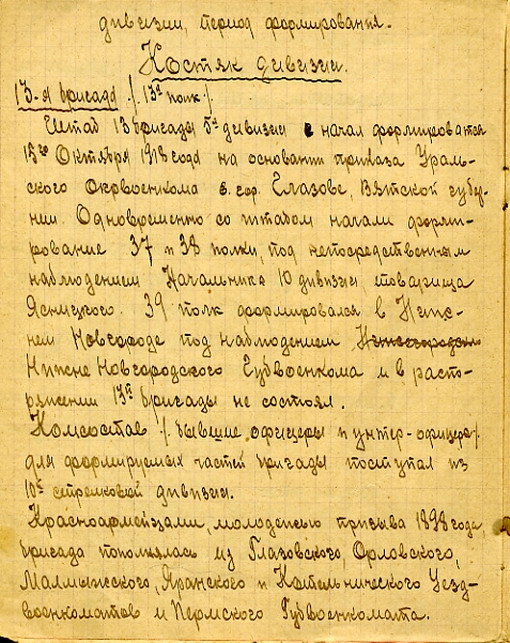 дивизии, период формирования.
Костяк дивизии.
13-я бригада /. 13й полк /.
Штаб 13 бригады 5й дивизии начал формироваться
15го Октября 1918 года на основании приказа Ураль-
ского Окрвоенкома в гор. Глазове, Вятской губер-
нии. Одновременно со штабом начали форми-
рование 37 и 38 полки, под непосредственным
наблюдением Начальника 10 дивизии товарища
Ясницкого. 39 полк формировался в Ниж-
нем Новгороде под наблюдением
Нижне Новгородского Губвоенкома и в распо-
ряжении 13й бригады не состоял.
Комсостав /. бывшие офицеры и унтер-офицера /.
для формируемых частей бригады поступал из
10й стрелковой дивизии.
Красноармейцами, молодежью призыва 1898 года,
бригада пополнялась из Глазовского, Орловского,
Малмыжского, Яранского и Котельнического Уезд-
военкоматов и Пермского Губвоенкомата.